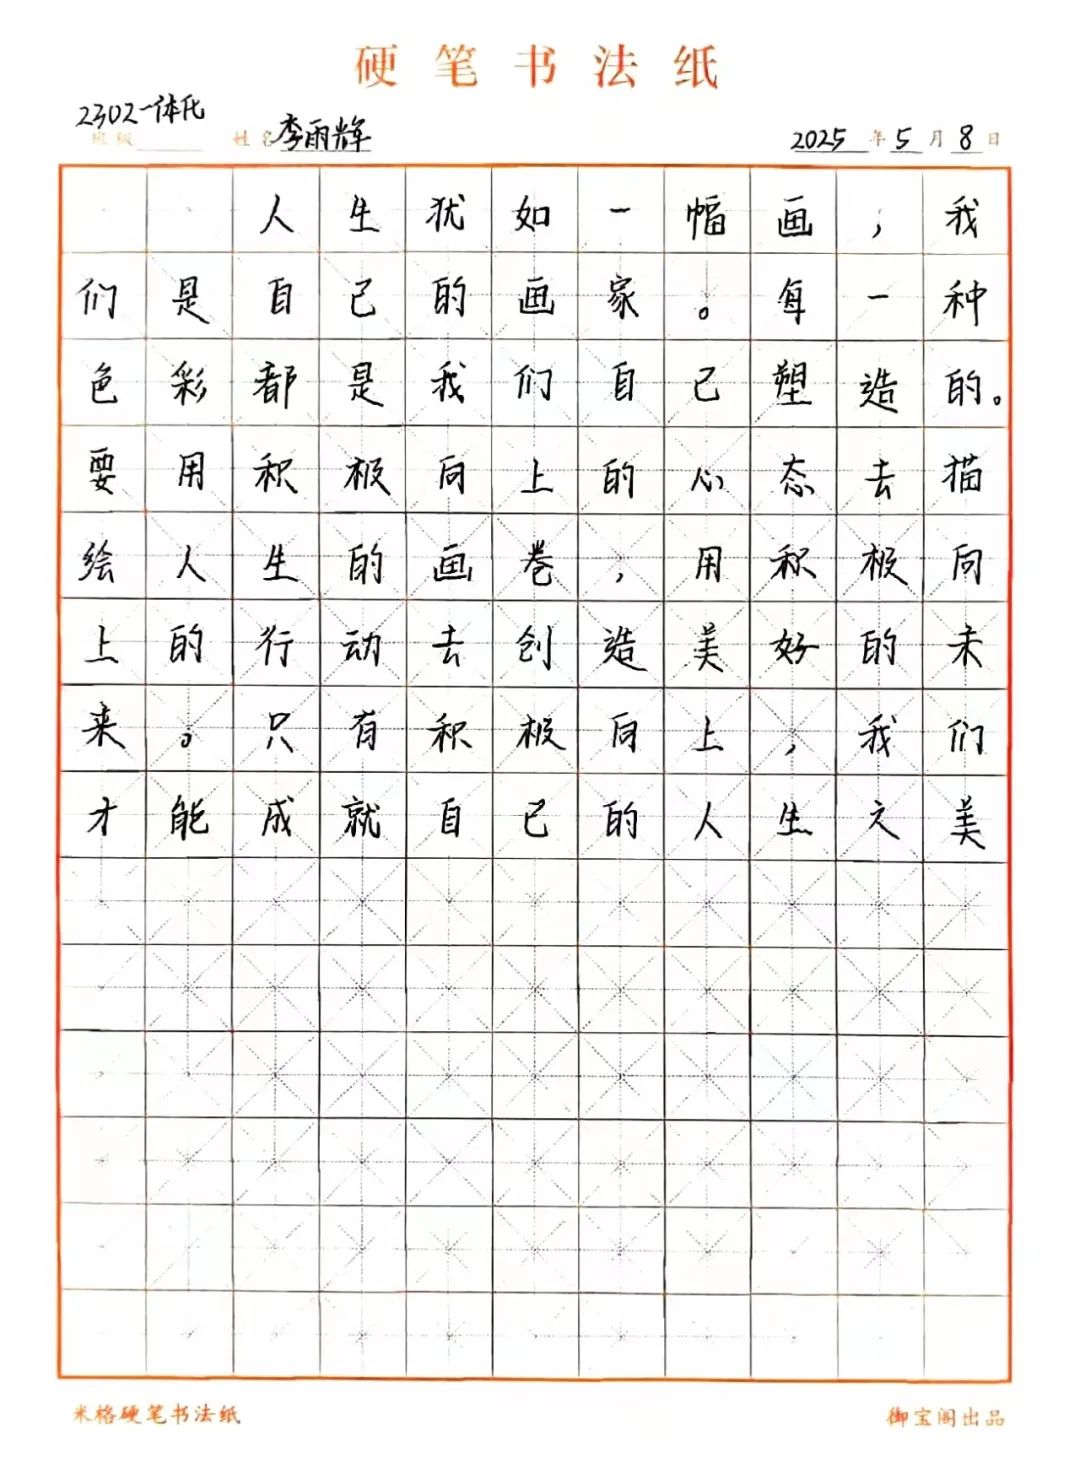 硬笔书法纸
2302一体化
班级 姓名 李雨辉 2025年5月8日
人生犹如一幅画，我
们是自己的画家。每一种
色彩都是我们自己塑造的。
要用积极向上的心态去描
绘人生的画卷，用积极向
上的行动去创造美好的未
来。只有积极向上，我们
才能成就自己的人生之美
米格硬笔书法纸 御宝阁出品